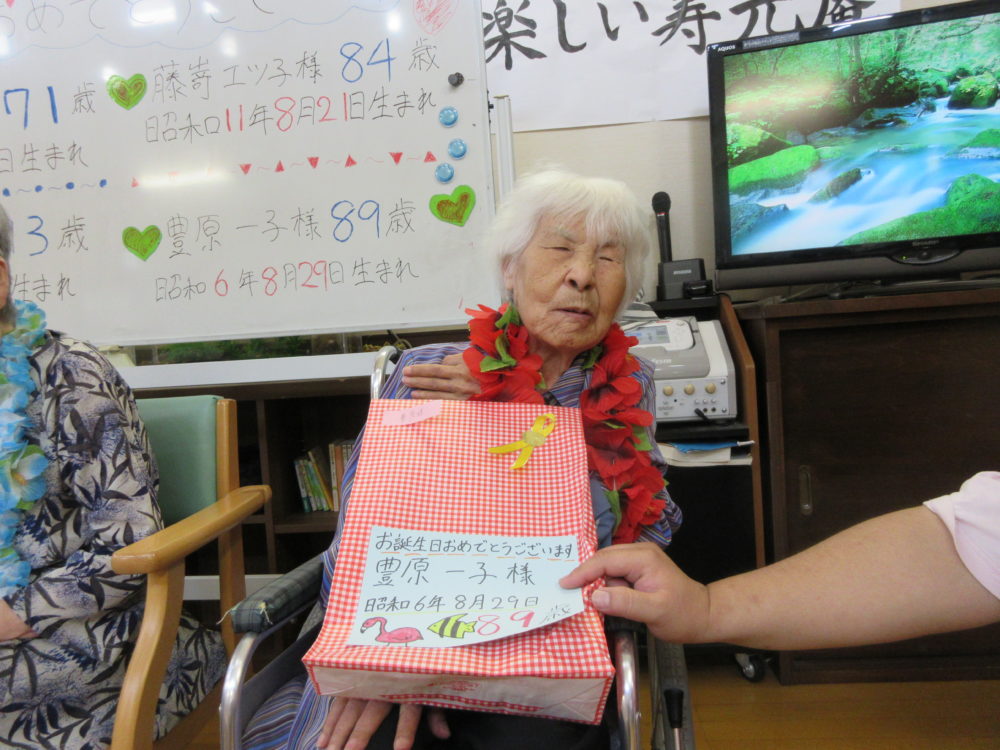 おめでとうございます
71歳
日生まれ
3歳
生まれ
藤嵜 エツ子様 84歳
昭和11年8月21日生まれ
豊原 一子様 89歳
昭和6年8月29日生まれ
楽しい寿元庵
AQUOS
お誕生日おめでとうございます
豊原 一子様
昭和6年8月29日
89歳